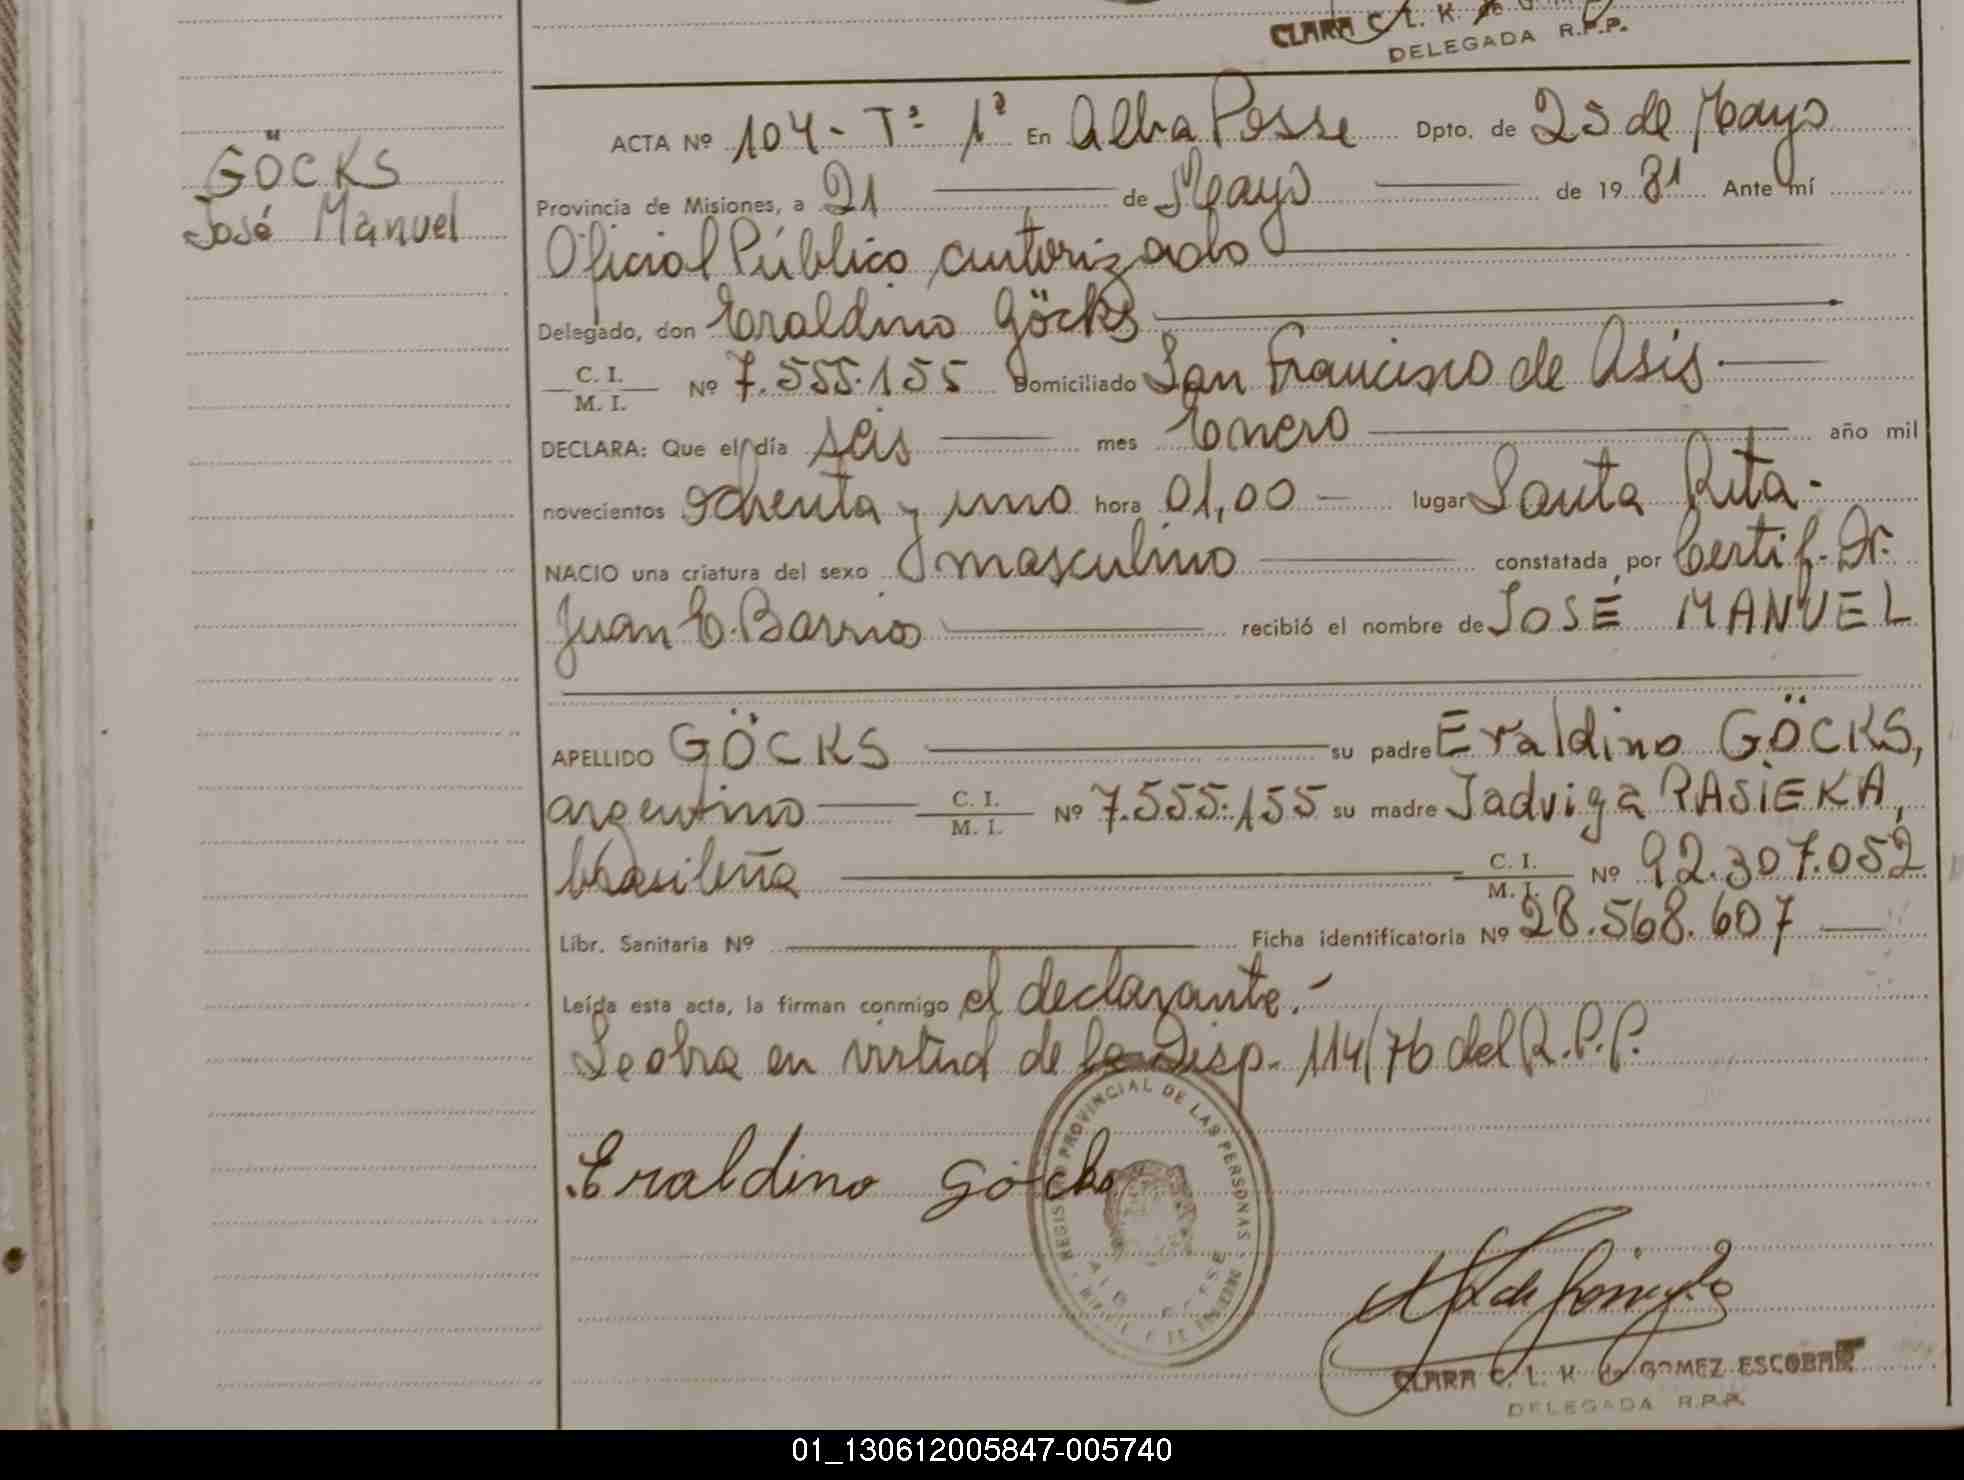 CLARA C. L. K. de G
DELEGADA R.P.P.
GÖCKS
José Manuel
ACTA Nº 104- Tº 1º En Alba Posse Dpto. de 25 de Mayo
Provincia de Misiones, a 21 de Mayo de 19 81 Ante mí
Oficial Público autorizado
Delegado, don Eraldino Göcks
C. I.
M. I. Nº 7.555.155 Domiciliado San Francisco de Asis
DECLARA: Que el día seis mes Enero año mil
novecientos ochenta y uno hora 01,00 lugar Santa Rita.
NACIO una criatura del sexo masculino constatada por Certif. Dr.
Juan E. Barrios recibió el nombre de JOSÉ MANUEL
APELLIDO GÖCKS su padre Eraldino GÖCKS,
argentino C. I.
M. I. Nº 7.555.155 su madre Jadviga RASIEKA,
brasileña C. I.
M. I. Nº 92.307.052
Libr. Sanitaria Nº Ficha identificatoria Nº 28.568.607
Leída esta acta, la firman conmigo el declarante.-
Se obra en virtud de la Disp. 114/76 del R.P.P.
REGISTRO PROVINCIAL DE LAS PERSONAS
Eraldino Göcks
CLARA C. L. K. de GOMEZ ESCOBAR
DELEGADA R.P.P.
01_130612005847-005740